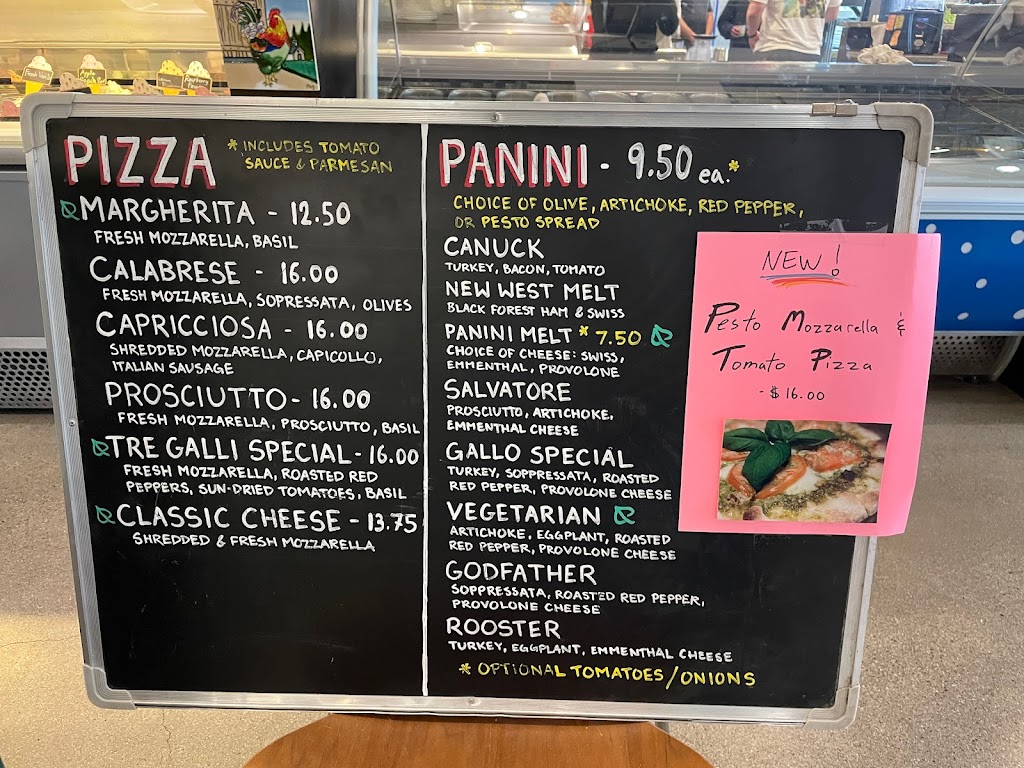 PIZZA
* INCLUDES TOMATO
SAUCE & PARMESAN
MARGHERITA - 12.50
FRESH MOZZARELLA, BASIL
CALABRESE - 16.00
FRESH MOZZARELLA, SOPRESSATA, OLIVES
CAPRICCIOSA - 16.00
SHREDDED MOZZARELLA, CAPICOLLO,
ITALIAN SAUSAGE
PROSCIUTTO - 16.00
FRESH MOZZARELLA, PROSCIUTTO, BASIL
TRE GALLI SPECIAL - 16.00
FRESH MOZZARELLA, ROASTED RED
PEPPERS, SUN-DRIED TOMATOES, BASIL
CLASSIC CHEESE - 13.75
SHREDDED & FRESH MOZZARELLA
PANINI - 9.50 ea.*
CHOICE OF OLIVE, ARTICHOKE, RED PEPPER,
OR PESTO SPREAD
CANUCK
TURKEY, BACON, TOMATO
NEW WEST MELT
BLACK FOREST HAM & SWISS
PANINI MELT * 7.50
CHOICE OF CHEESE: SWISS,
EMMENTHAL, PROVOLONE
SALVATORE
PROSCIUTTO, ARTICHOKE,
EMMENTHAL CHEESE
GALLO SPECIAL
TURKEY, SOPPRESSATA, ROASTED
RED PEPPER, PROVOLONE CHEESE
VEGETARIAN
ARTICHOKE, EGGPLANT, ROASTED
RED PEPPER, PROVOLONE CHEESE
GODFATHER
SOPPRESSATA, ROASTED RED PEPPER,
PROVOLONE CHEESE
ROOSTER
TURKEY, EGGPLANT, EMMENTHAL CHEESE
* OPTIONAL TOMATOES/ONIONS
NEW!
Pesto Mozzarella &
Tomato Pizza
- $16.00